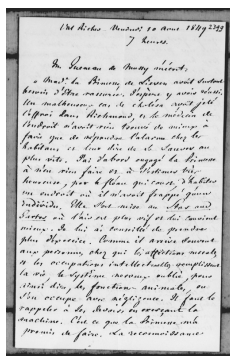 Val Richer. Vendredi 10 Aout 1849 2399
7 heures.
M. Gueneau de Mussy m'écrit,
" Made la Princesse de Lieven avait surtout
besoin d'être rassurée. J'espère y avoir réussi.
Un malheureux cas de choléra avait jeté
l'effroi dans Richmond, et le médecin de
l'endroit n'avait rien trouvé de mieux à
faire que de répandre l'alarme chez les
habitans et leur dire de se sauver au
plus vite. J'ai d'abord engagé la Princesse
à n'en rien faire et à
par le fléau qui court, d'habiter
un endroit où il n'avait frappé qu'un
individu. Elle est mise au Star and
Garter où l'air est plus vif et lui convient
mieux. Je lui ai conseillé de prendre
plus d'exercice. Comme il arrive souvent
aux personnes chez qui les affections morales
et les occupations intellectuelles remplissent
la vie, le système nerveux oublie, pour
ainsi dire, les fonctions animales, ou
s'en occupe avec négligence. Il faut le
rappeler à ses devoirs en exerçant la
machine. C'est ce que la Princesse m'a
promis de faire. La reconnaissance